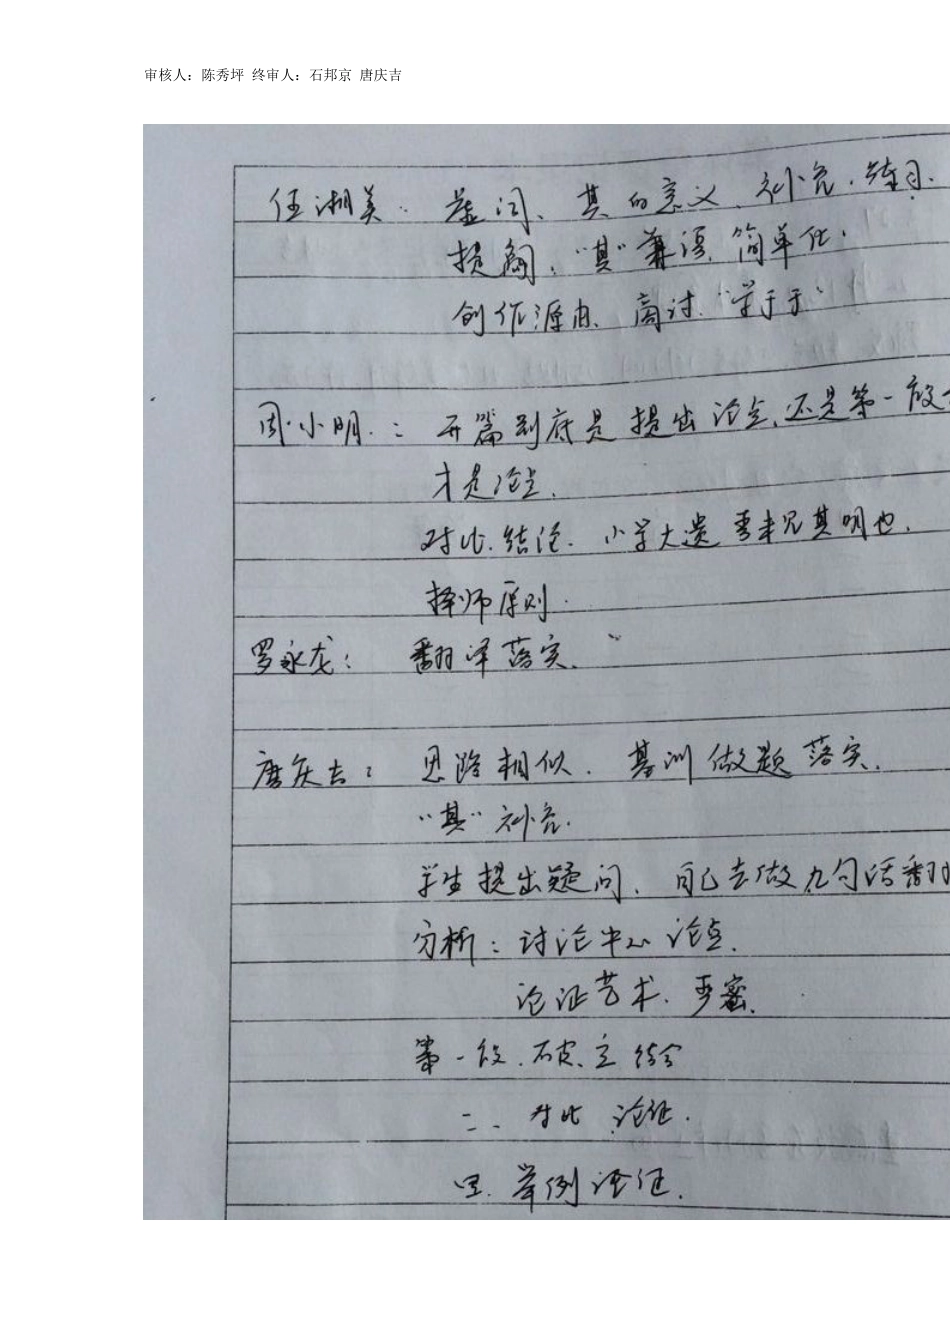 审核人：陈秀坪 终审人：石邦京 唐庆吉
任湘美：虚词、其的意义、补充、
提纲，"其"兼语，简单化.
创作源由、商讨."学于于"
周小明：：开篇到底是提出论点,还是第一段
才是论点.
对比.结论.小学大遗 吾未见其明也.
择师原则.
罗永龙：翻译落实.
唐庆吉：思路相似.基训做题落实.
"其"补充.
学生提出疑问、自己去做,九句话翻
分析：讨论中心论点.
论证艺术.严密.
第一段.破、立结合
二、对比论证.
四.举例论证.